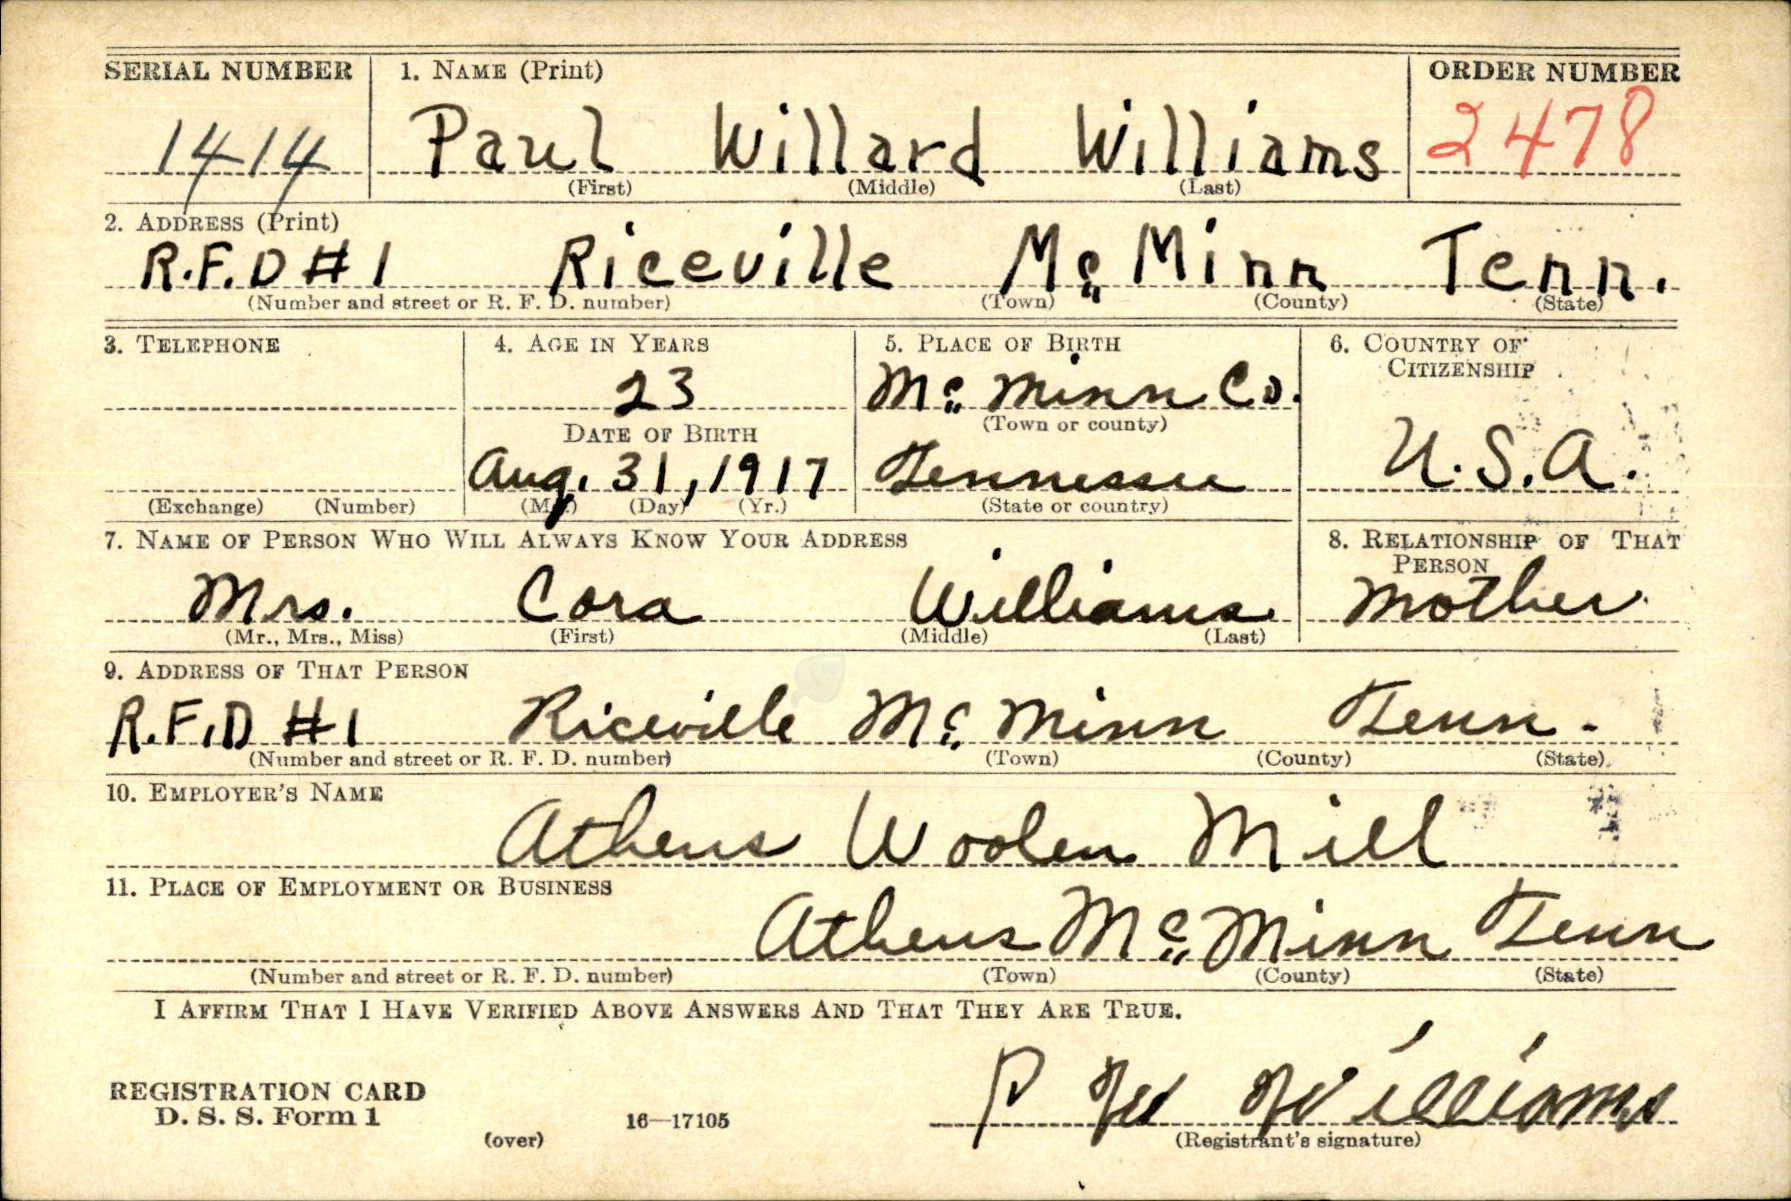 SERIAL NUMBER 1. NAME (Print) ORDER NUMBER
1414 Paul Willard Williams 2478
(First) (Middle) (Last)
2. ADDRESS (Print)
R.F.D #1 Riceville Mc Minn Tenn.
(Number and street or R. F. D. number) (Town) (County) (State)
3. TELEPHONE 4. AGE IN YEARS 5. PLACE OF BIRTH 6. COUNTRY OF
CITIZENSHIP
23 Mc Minn Co.
(Town or county)
DATE OF BIRTH
Aug. 31, 1917 Tennessee U.S.A.
(Exchange) (Number) (Mo.) (Day) (Yr.) (State or country)
7. NAME OF PERSON WHO WILL ALWAYS KNOW YOUR ADDRESS 8. RELATIONSHIP OF THAT
PERSON
Mrs. Cora Williams Mother
(Mr., Mrs., Miss) (First) (Middle) (Last)
9. ADDRESS OF THAT PERSON
R.F.D #1 Riceville Mc Minn Tenn.
(Number and street or R. F. D. number) (Town) (County) (State)
10. EMPLOYER'S NAME
Athens Woolen Mill
11. PLACE OF EMPLOYMENT OR BUSINESS
Athens Mc Minn Tenn
(Number and street or R. F. D. number) (Town) (County) (State)
I AFFIRM THAT I HAVE VERIFIED ABOVE ANSWERS AND THAT THEY ARE TRUE.
P W Williams
REGISTRATION CARD
D. S. S. Form 1 16—17105
(over) (Registrant's signature)